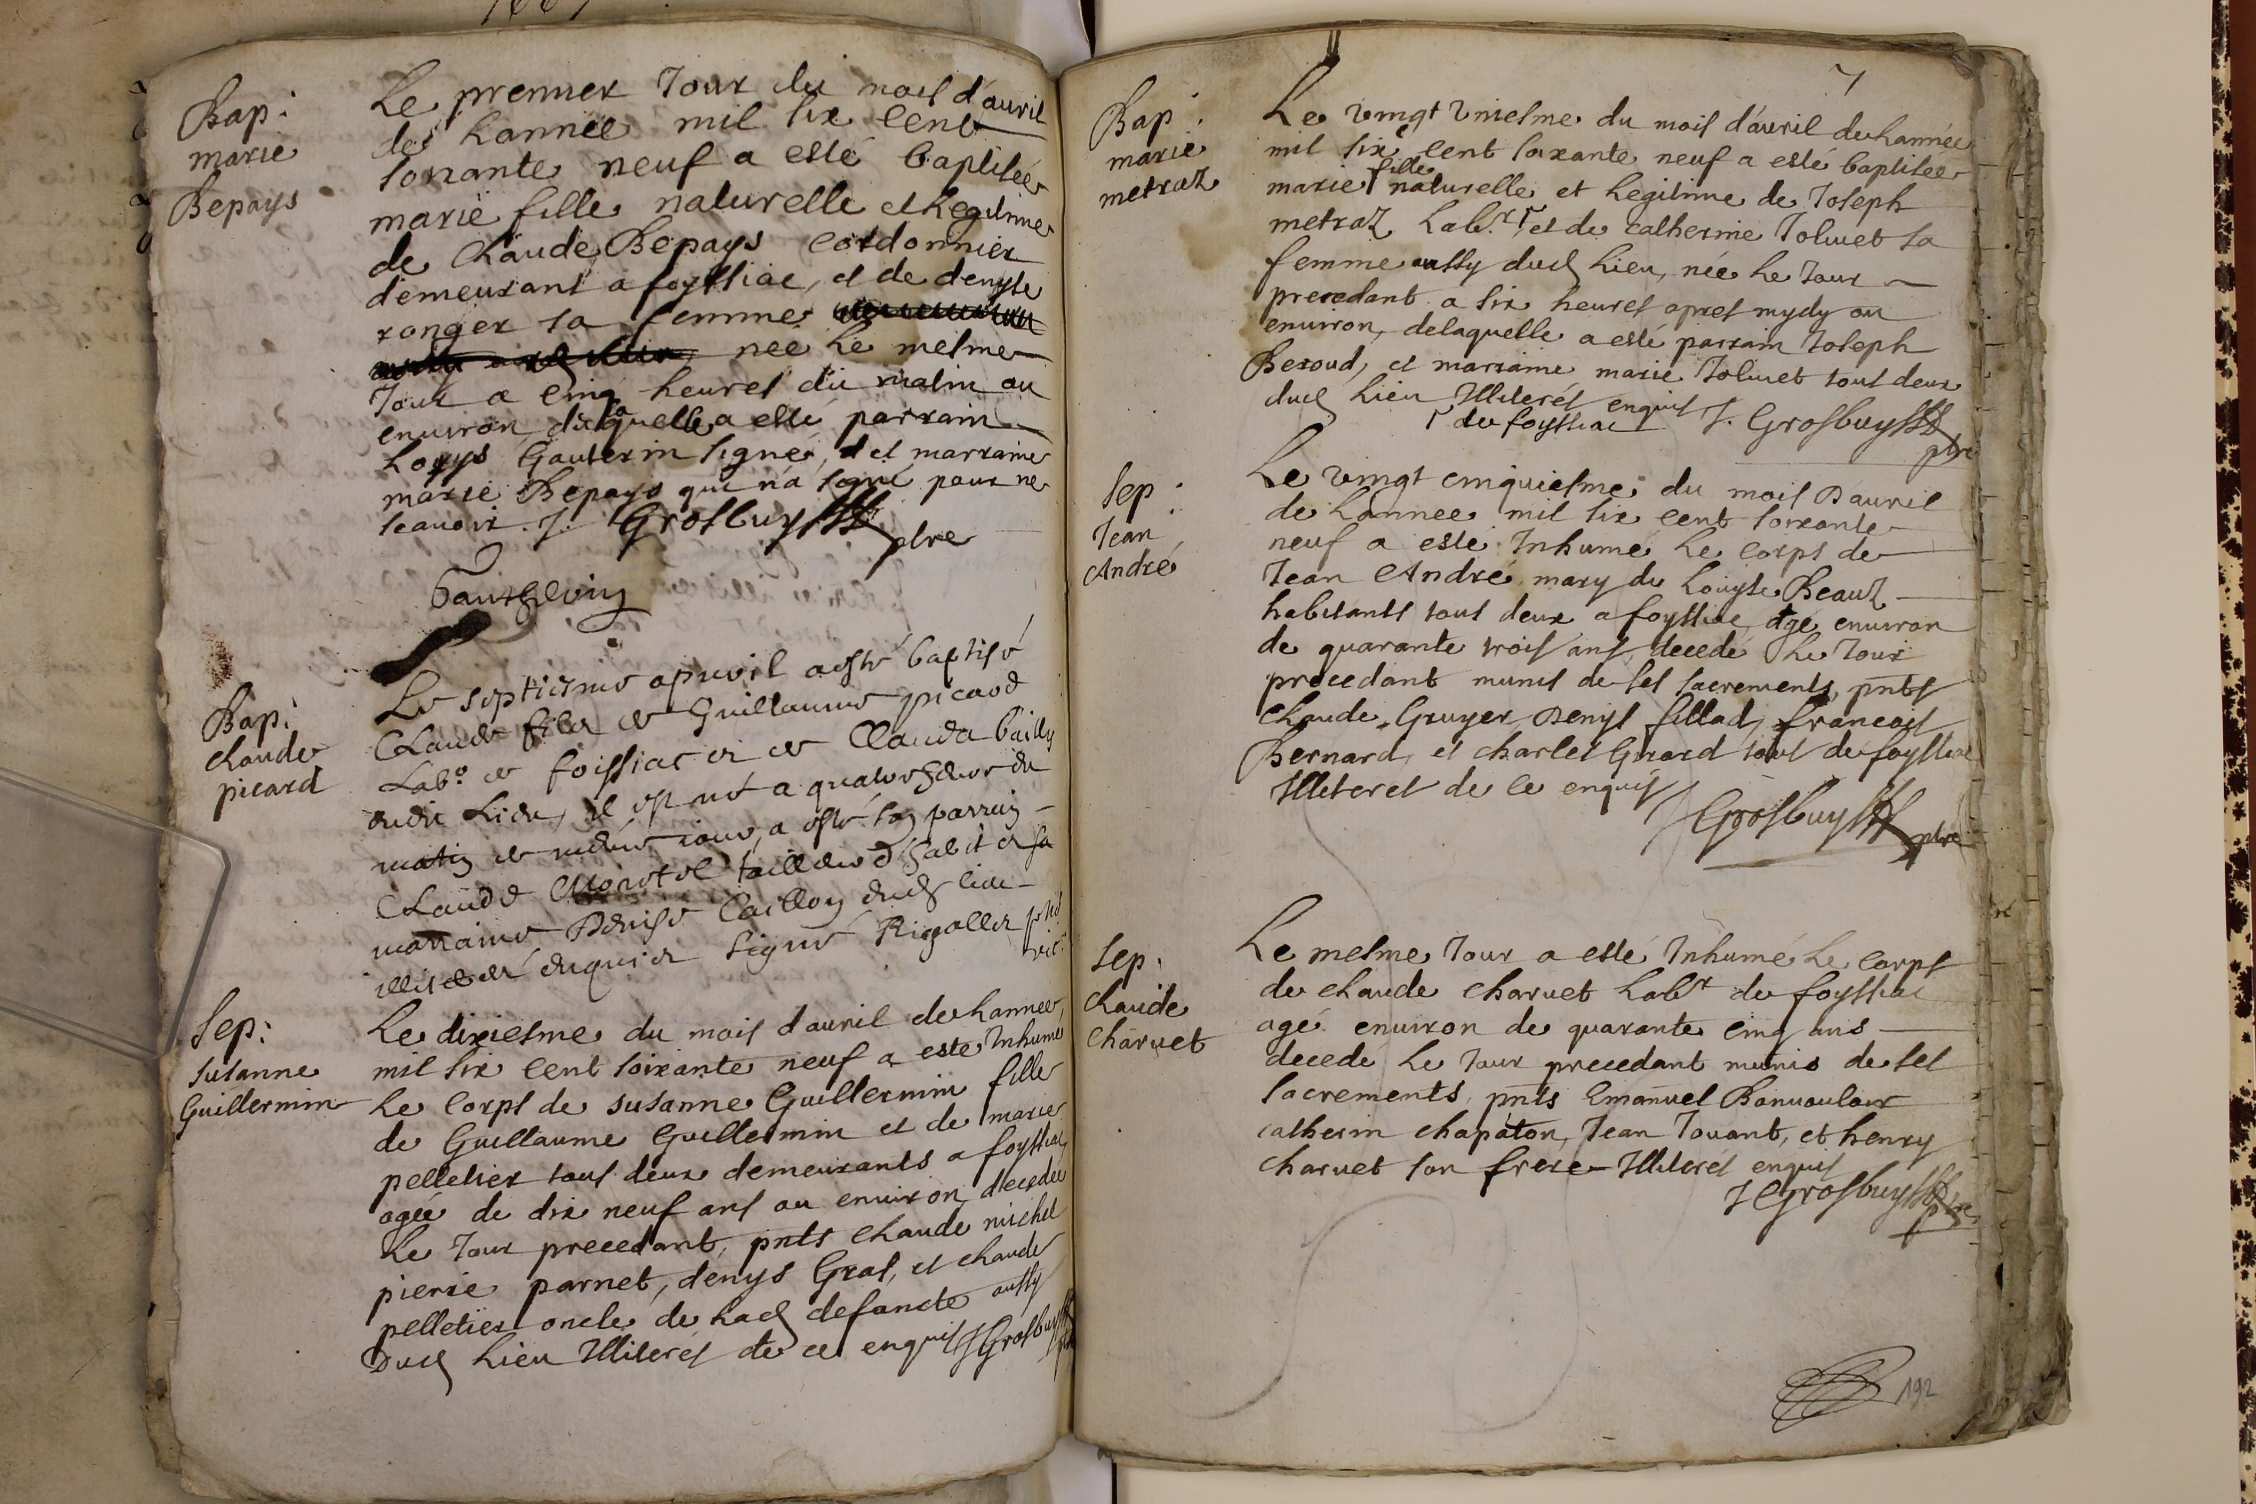 Bap:
marie
Bepays
Le premier Jour du mois d'auril
de Lannee mil six cent
soixante neuf a esté baptisée
marie fille naturelle et Legitime
de Claude Bepays cordonnier
demeurant a foyssiac, et de denyse
ronger sa femme
née le mesme
Jour a cinq heures du matin ou
enuiron, de laquelle a esté parrain
Louys Gauterin signé, et marraine
marie Bepays qui n'a signé pour ne
scauoir. J. Grosbuys ptre
Gautherin
Bap:
claude
picard
Le septiesme apuril a esté baptisé
Claude filz de Guillaume picard
Labo. de foissiac et de Clauda bailly
dudit Lieu, il est né a quatre heures du
matin de mesme iour, a esté son parrain
Claude Monotel tailleur d'habit et sa
marraine Denise Caillon dud lieu
illiterés enquis et signé Rigollet
vic:
Sep:
susanne
Guillermin
Le dixiesme du mois d'auril de Lannee
mil six cent soixante neuf a este Inhumé
Le corps de susanne Guillermin fille
de Guillaume Guillermin et de marie
pelletier tous deux demeurants a foyssiac
agée de dix neuf ans ou enuiron, decedée
Le Jour precedant, pnts claude michel
pierre parnet, denys Gras, et claude
pelletier oncle de lad defuncte aussy
Dud Lieu Illiterés de ce enquis J Grosbuys
7
Bap:
marie
metraz
Le vingt vniesme du mois d'auril de Lannée
mil six cent soixante neuf a esté baptisée
marie fille naturelle et Legitime de Joseph
metraz Labr. et de catherine Joliuet sa
femme aussy dud Lieu, née le Jour
precedant a six heures apres mydy ou
enuiron, delaquelle a esté parrain Joseph
Beroud, et marraine marie Joliuet tous deux
dud Lieu Illiterés enquis J. Grosbuys
de foyssiac
ptre
Sep:
Jean
André
Le vingt cinquiesme du mois D'auril
de Lannee mil six cent soixante
neuf a este Inhumé Le corps de
Jean André mary de Louyse Beaud
habitants tous deux a foyssiac, agé enuiron
de quarante trois ans, decedé Le Jour
precedant munis de ses sacrements, pnts
Claude Gruyer, Denys fillad, francois
Bernard, et charles Girard tous de foyssiac
Illiterés de ce enquis
J Grosbuys ptre
Sep:
Claude
Charuet
Le mesme Jour a esté Inhumé Le corps
de claude charuet Labr de foyssiac
agé enuiron de quarante cinq ans
decedé Le Jour precedant munis de ses
sacrements, pnts Emanuel Bonuouloir
catherin chapaton, Jean Jouant, et henry
charuet son frere Illiterés enquis
J Grosbuys ptre
192